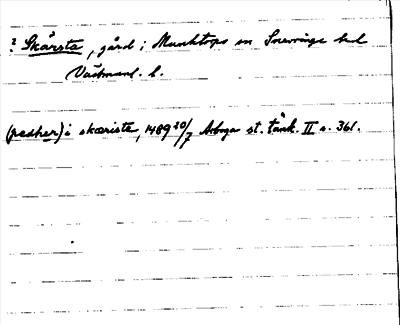 ? Skärsta, gård i Munktorps sn Snevringe hd
Västmanl. l.
(pedher) i skærista, 1489 20/7 Arboga st. tänk. II s. 361.